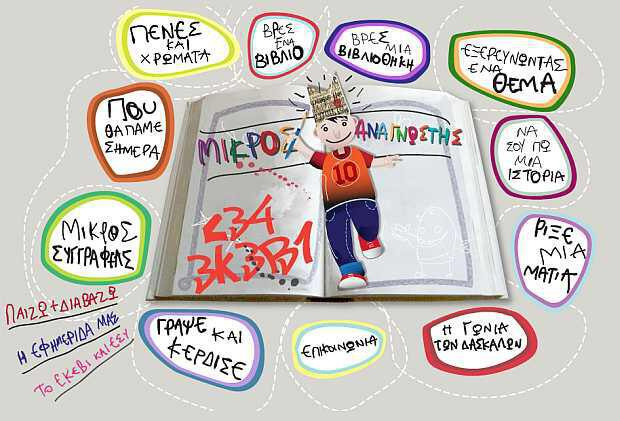 ΠΕΝΕΣ
ΚΑΙ
ΧΡΩΜΑΤΑ
ΒΡΕΣ
ΕΝΑ
ΒΙΒΛΙΟ
ΒΡΕΣ ΜΙΑ
ΒΙΒΛΙΟΘΗΚΗ
ΕΞΕΡΕΥΝΩΝΤΑΣ
ΕΝΑ
ΘΕΜΑ
ΠΟΥ
ΘΑ ΠΑΜΕ
ΣΗΜΕΡΑ
ΜΙΚΡΟΣ ΑΝΑΓΝΩΣΤΗΣ
10
ΝΑ
ΣΟΥ ΠΩ
ΜΙΑ
ΙΣΤΟΡΙΑ
ΜΙΚΡΟΣ
ΣΥΓΓΡΑΦΕΑΣ
3K3B1
ΡΙΞΕ
ΜΙΑ
ΜΑΤΙΑ
ΠΑΙΖΩ + ΔΙΑΒΑΖΩ
Η ΕΦΗΜΕΡΙΔΑ ΜΑΣ
ΤΟ ΕΚΕΒΙ ΚΑΙ ΕΣΥ
ΓΡΑΨΕ ΚΑΙ
ΚΕΡΔΙΣΕ
ΕΠΙΚΟΙΝΩΝΙΑ
Η ΓΩΝΙΑ
ΤΩΝ ΔΑΣΚΑΛΩΝ